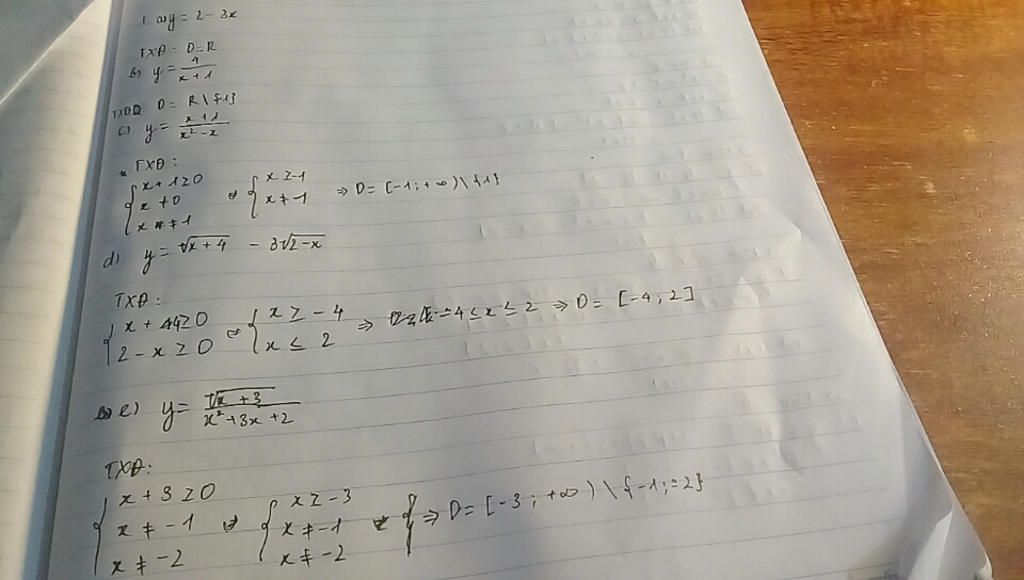 1. a) y = 2 - 3x
TXĐ: D = R
b) y = 4/(x + 1)
D = R \ {1}
c) y = (x + 1)/(x² - x)
TXĐ:
{ x + 1 ≥ 0
x ≠ 0
x ≠ 1 ⇔ { x ≥ -1
x ≠ 1 ⇒ D = [-1; +∞) \ {1}
d) y = √(x + 4) - 3√(2 - x)
TXĐ:
{ x + 4 ≥ 0
2 - x ≥ 0 ⇔ { x ≥ -4
x ≤ 2 ⇒ -4 ≤ x ≤ 2 ⇒ D = [-4; 2]
e) y = √(x + 3)/(x² + 3x + 2)
TXĐ:
{ x + 3 ≥ 0
x ≠ -1
x ≠ -2 ⇔ { x ≥ -3
x ≠ -1
x ≠ -2 ⇒ D = [-3; +∞) \ {-1; -2}